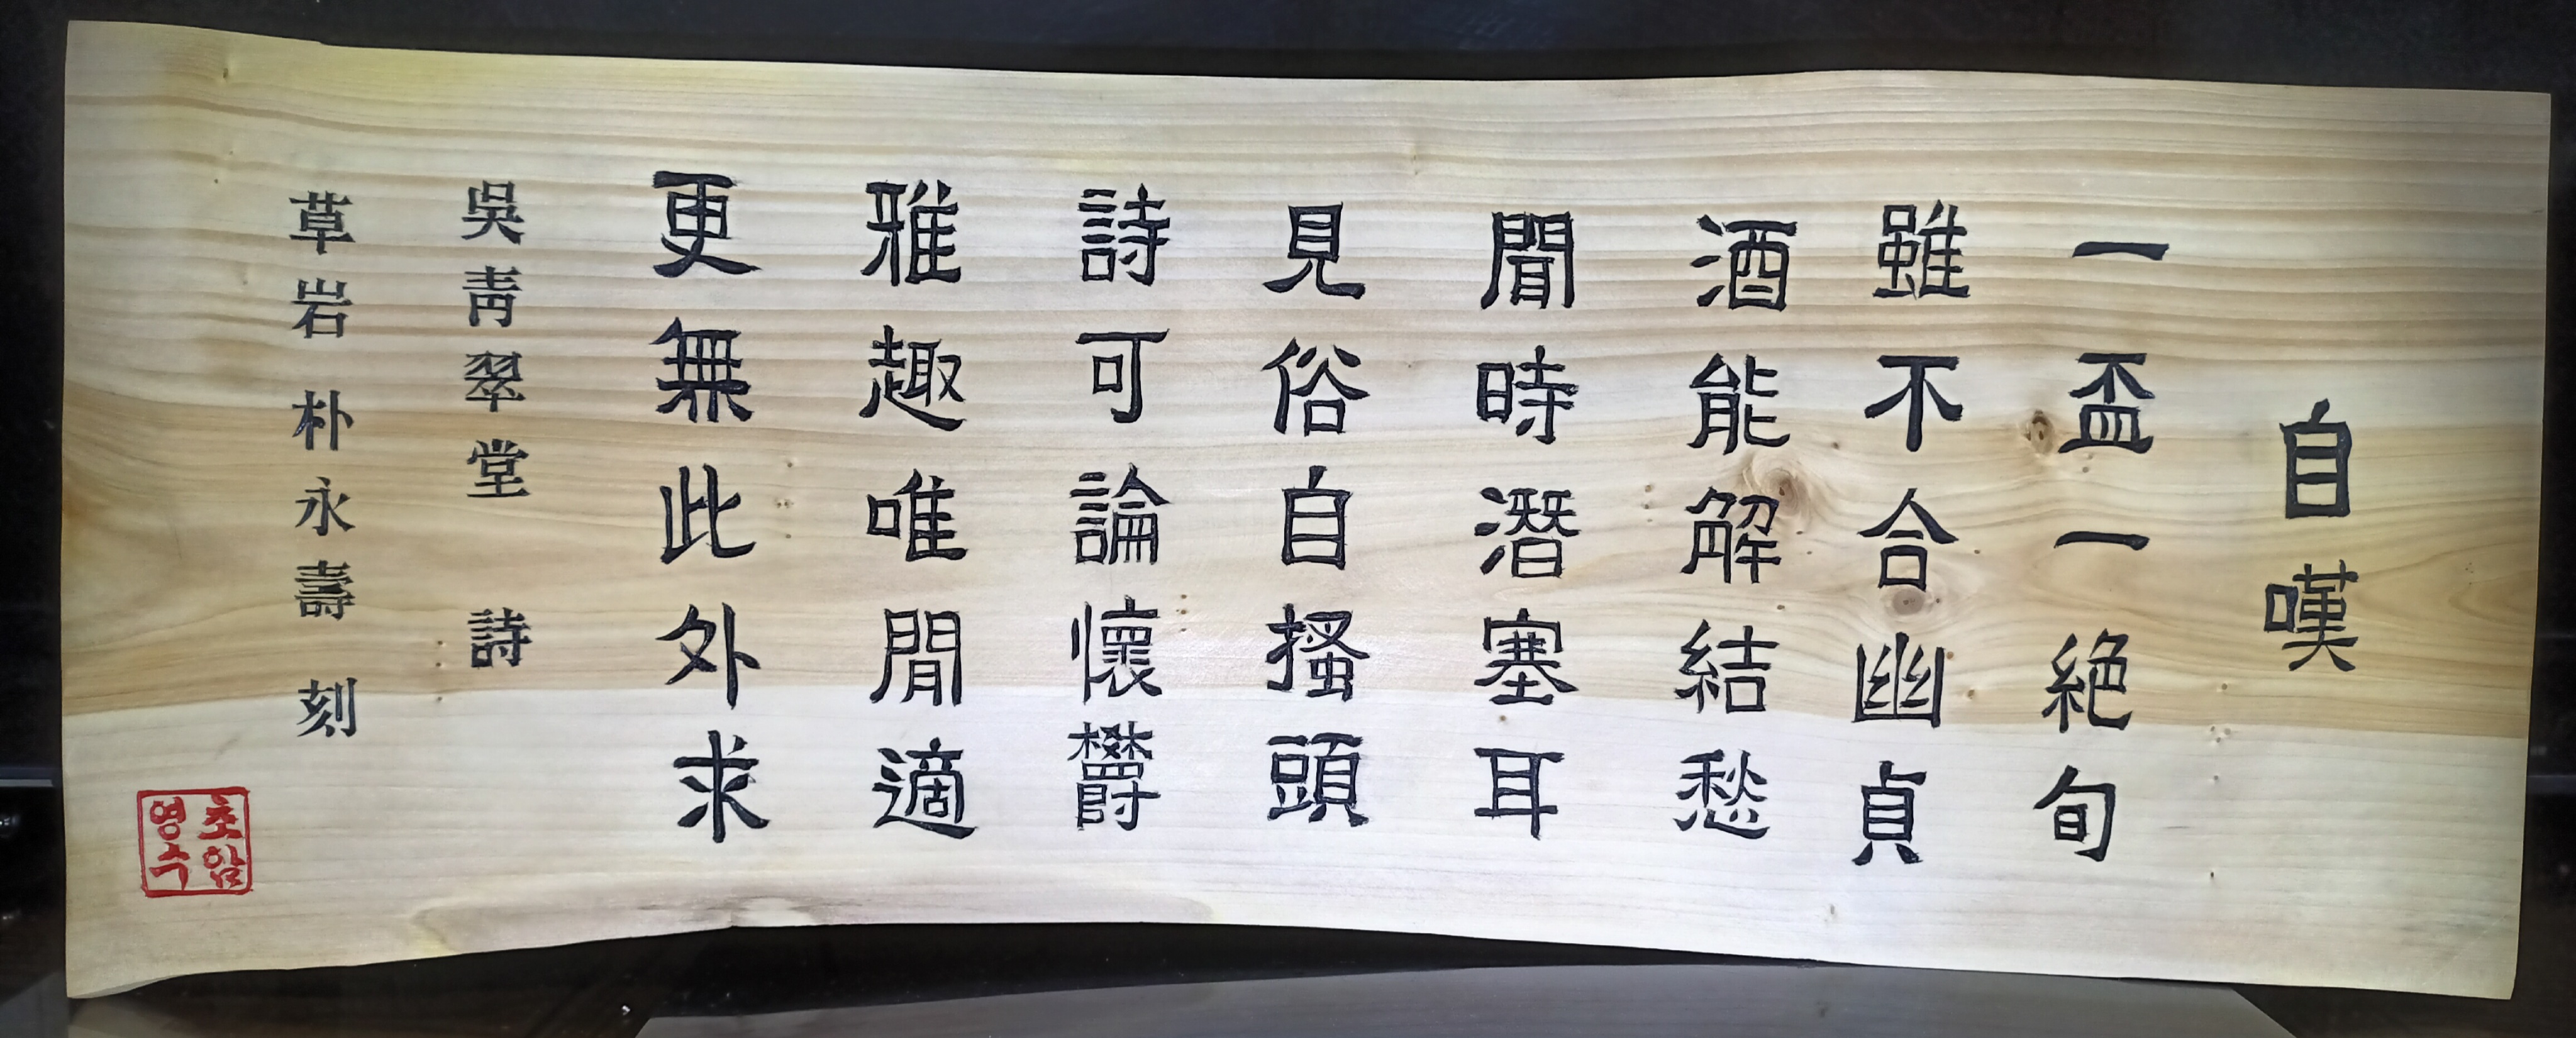 自嘆
一盃一絕旬
雖不合幽貞
酒能解結愁
聞時潛塞耳
見俗自搔頭
詩可論懷欝
雅趣唯閒適
更無此外求
吳靑翠堂 詩
草岩 朴永壽 刻
초암
영수